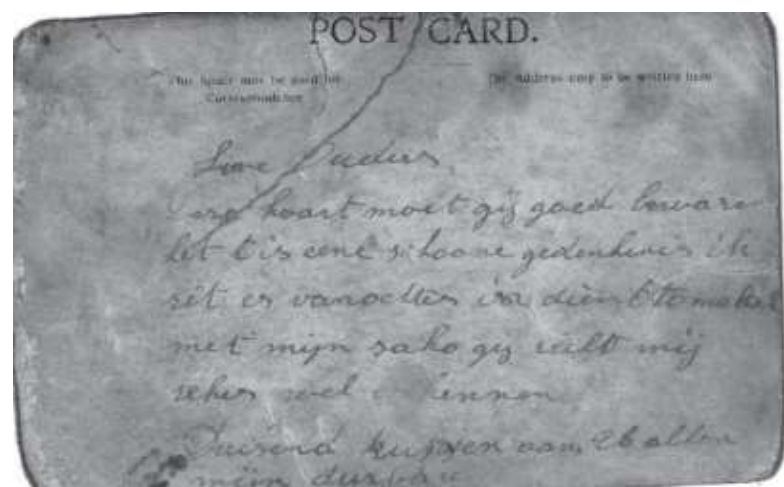 POST CARD.
This space may be used for
Correspondence
The Address only to be written here
Lieve Ouders
kaart moet gij goed beware
het tis eene schoone gedenkenis ik
sit er vanachter in dien
met mijn gij zult mij
seker wel kennen
Duisend kussen aan allen
mijn